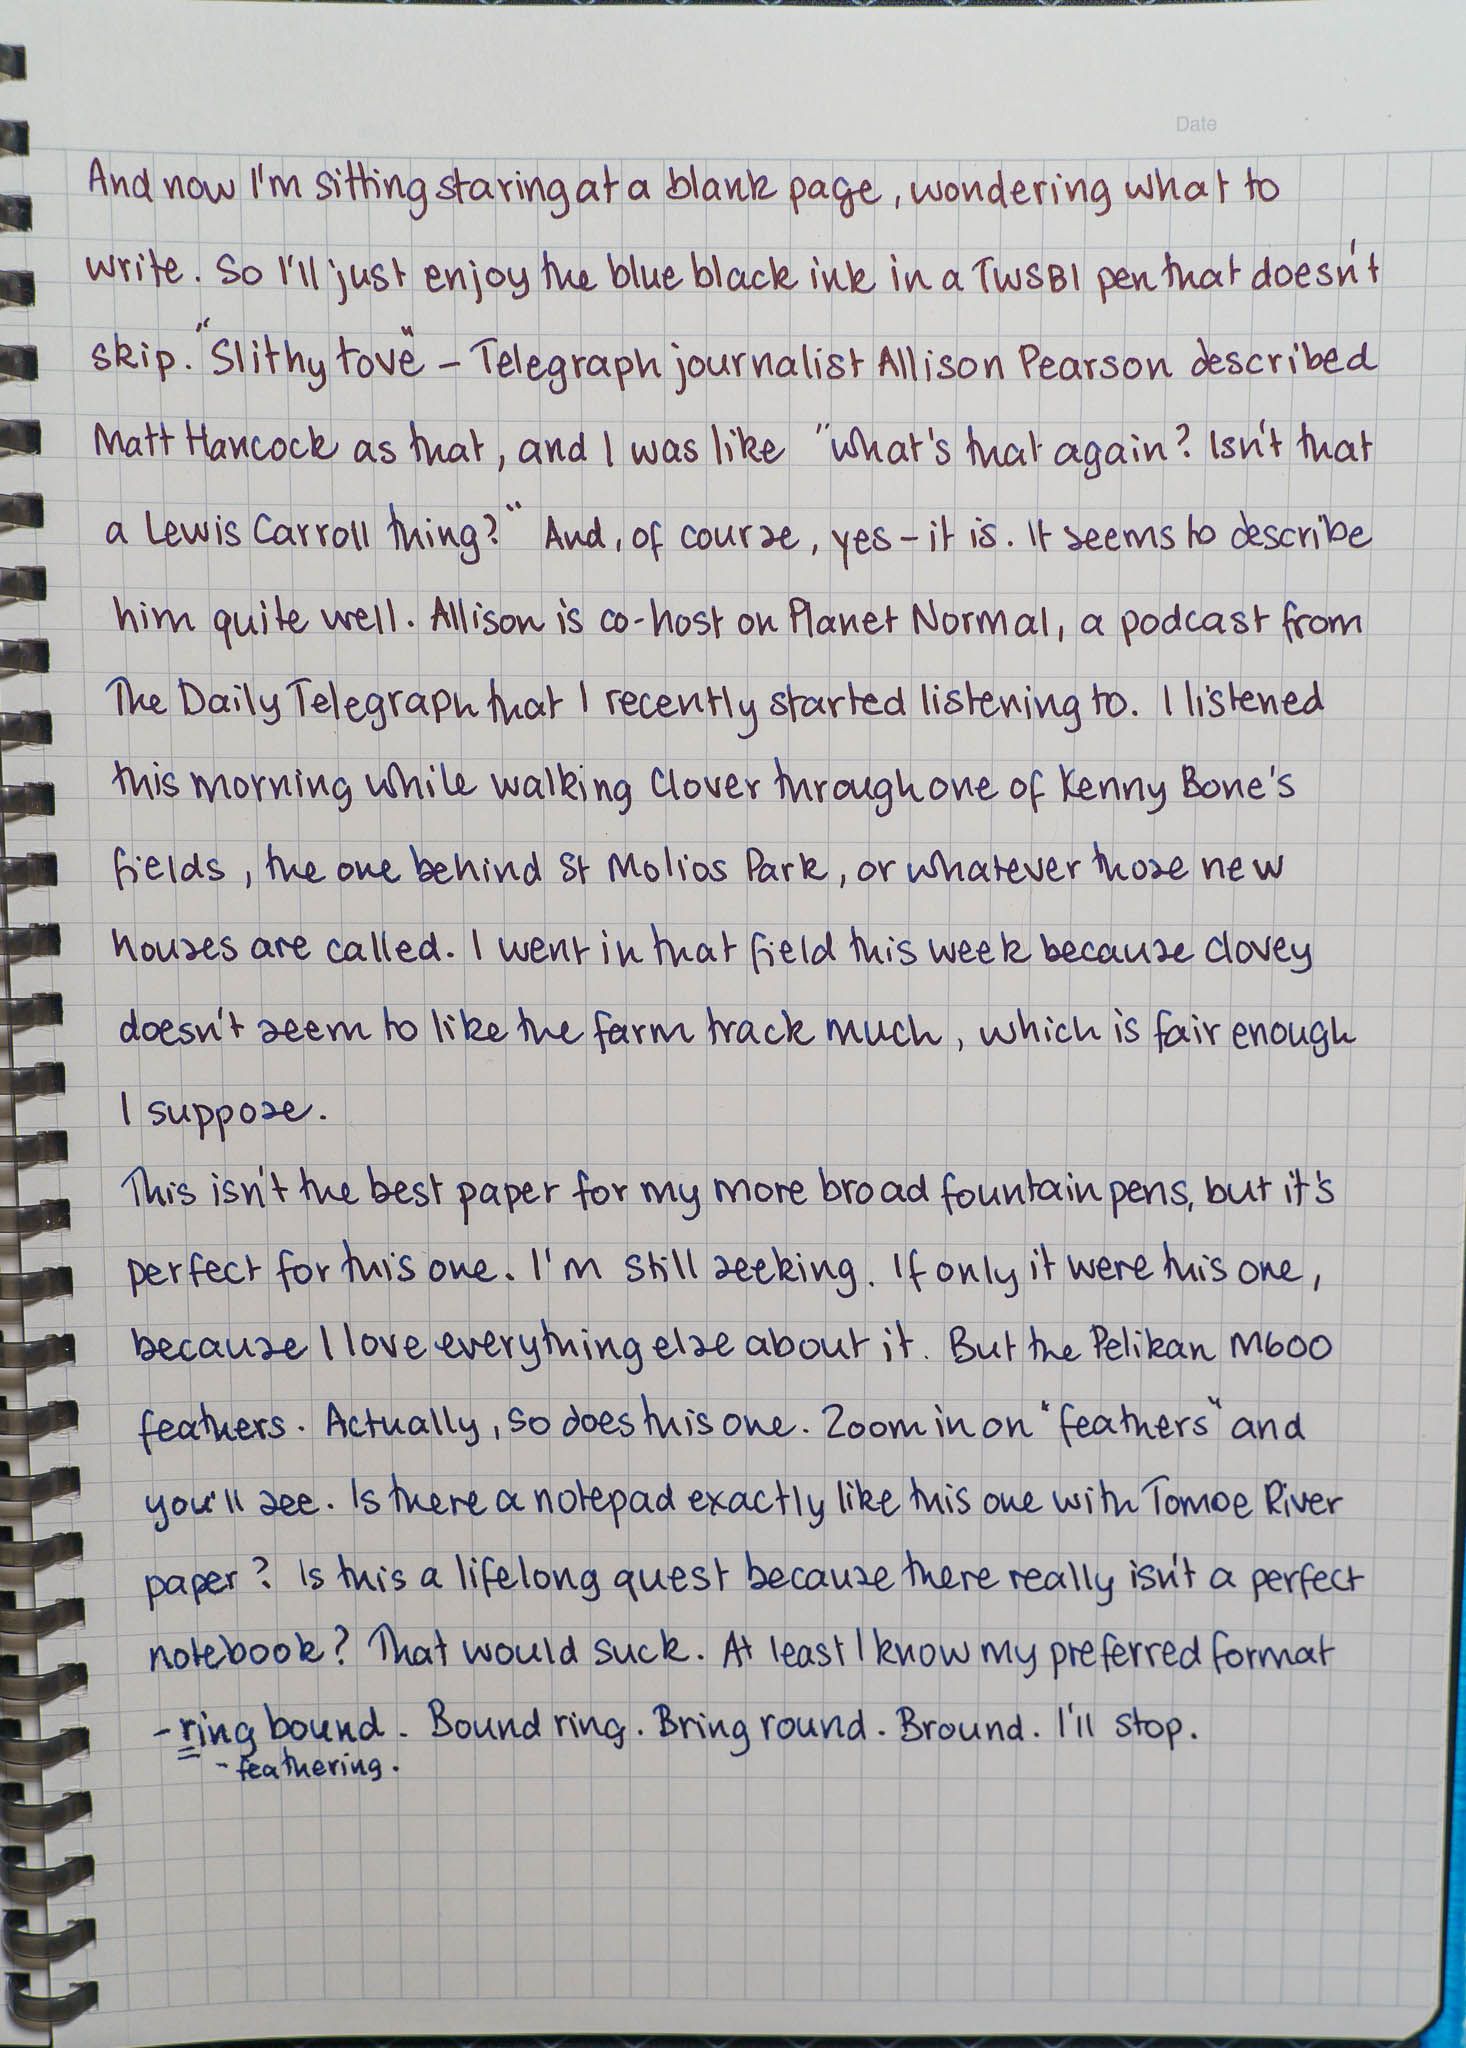 Date
And now I'm sitting staring at a blank page, wondering what to
write. So I'll just enjoy the blue black ink in a TWSBI pen that doesn't
skip. "Slithy tove" – Telegraph journalist Allison Pearson described
Matt Hancock as that, and I was like "what's that again? Isn't that
a Lewis Carroll thing?" And, of course, yes – it is. It seems to describe
him quite well. Allison is co-host on Planet Normal, a podcast from
The Daily Telegraph that I recently started listening to. I listened
this morning while walking Clover through one of Kenny Bone's
fields, the one behind St Molios Park, or whatever those new
houses are called. I went in that field this week because Clovey
doesn't seem to like the farm track much, which is fair enough
I suppose.
This isn't the best paper for my more broad fountain pens, but it's
perfect for this one. I'm still seeking. If only it were this one,
because I love everything else about it. But the Pelikan M600
feathers. Actually, so does this one. Zoom in on "feathers" and
you'll see. Is there a notepad exactly like this one with Tomoe River
paper? Is this a lifelong quest because there really isn't a perfect
notebook? That would suck. At least I know my preferred format
– ring bound. Bound ring. Bring round. Bround. I'll stop.
- feathering.